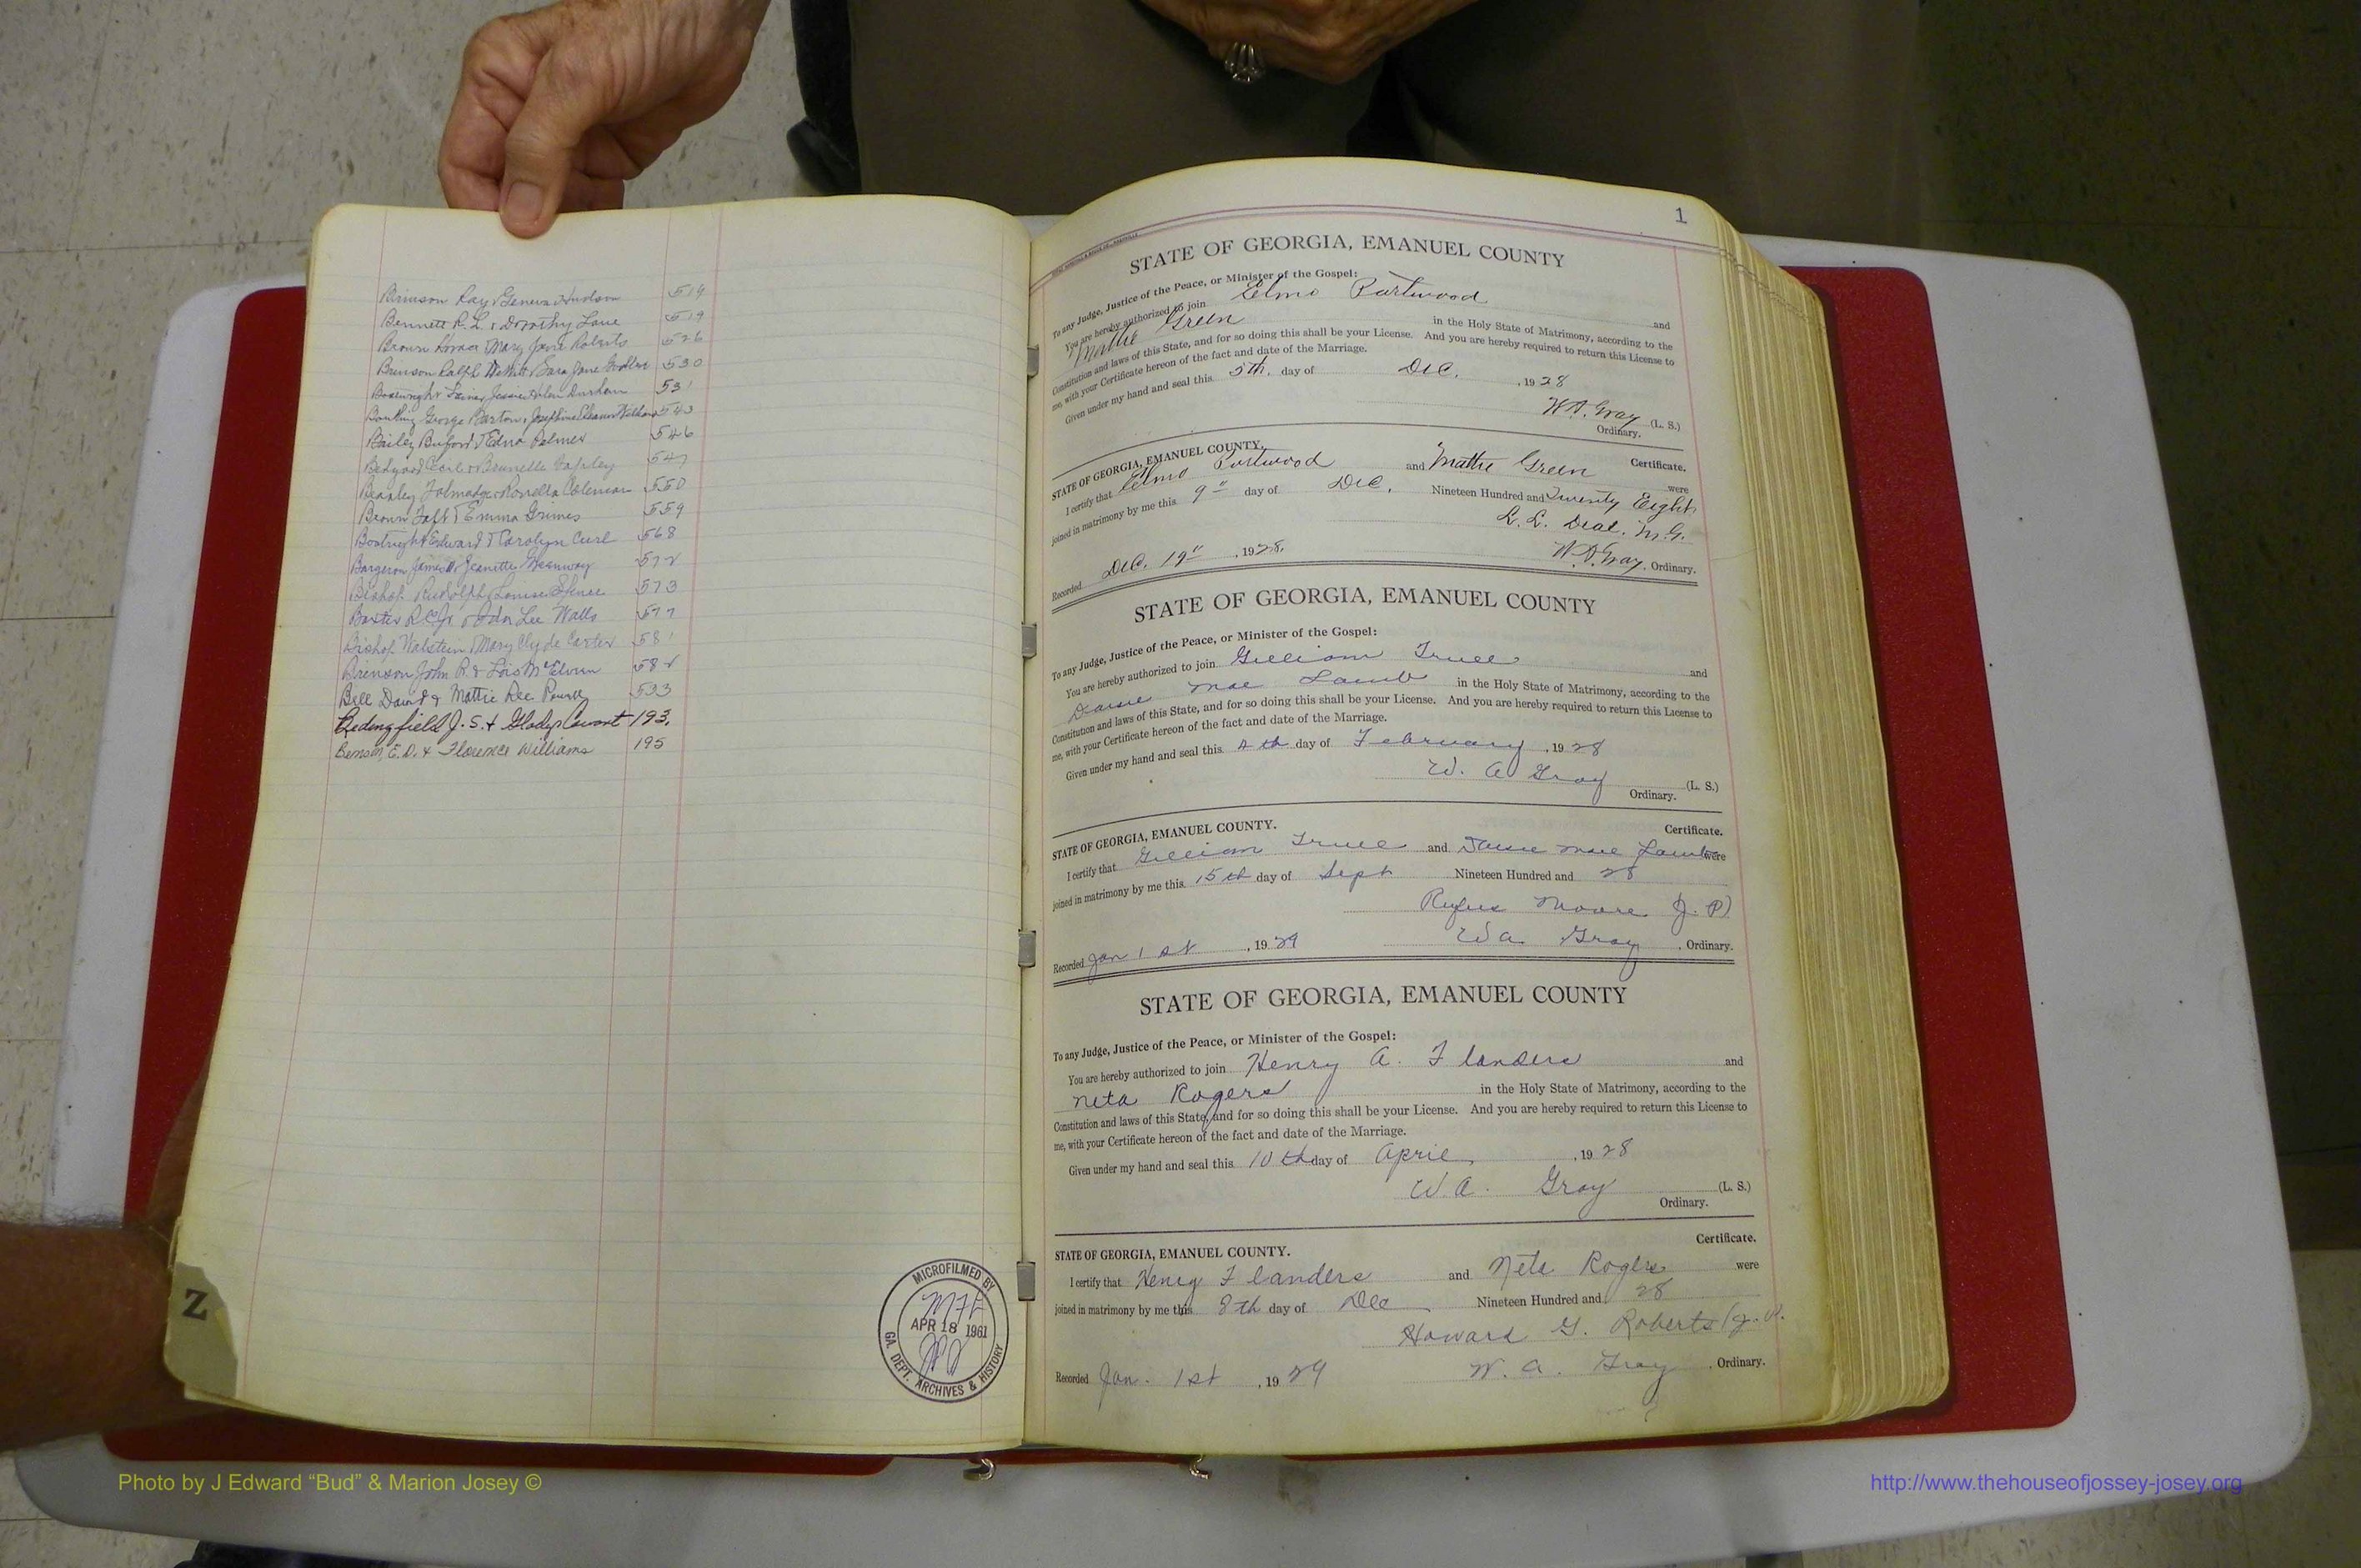 Brinson Ray & Geneva Hudson 514
Bennett R. L. & Dorothy Lane 519
Brown & Mary Jane Roberts 526
Brinson Ralph & Sara Jane 530
Jessie Helen Durham 531
George Barton & Josephine 543
Bailey Buford & Edna Palmer 546
547
Beasley Talmadge & Coleman 550
Brown Taft & Emma Grimes 559
Boatright Edward & Carolyn Curl 568
Bargeron James & Jeanette 572
Bishop Rudolph & Louise Spence 573
Baxter R.C. Jr. & Ida Lee Walls 577
Bishop Walstein & Mary Clyde Carter 581
Brinson John R. & Lois McElveen 582
Bell David & Mattie Lee Powell 593
Bedingfield J. S. & Gladys 193.
Benson, E. D. & Florence Williams 195
Z
MICROFILMED BY
APR 18 1961
GA. DEPT. ARCHIVES & HISTORY
1
STATE OF GEORGIA, EMANUEL COUNTY
To any Judge, Justice of the Peace, or Minister of the Gospel:
You are hereby authorized to join Elmo Partwood and
Mattie Green in the Holy State of Matrimony, according to the
Constitution and laws of this State, and for so doing this shall be your License. And you are hereby required to return this License to
me, with your Certificate hereon of the fact and date of the Marriage.
Given under my hand and seal this 5th. day of Dec. , 1928
W.A. Gray (L. S.)
Ordinary.
STATE OF GEORGIA, EMANUEL COUNTY. Certificate.
I certify that Elmo Partwood and Mattie Green were
joined in matrimony by me this 9" day of Dec. Nineteen Hundred and Twenty Eight
L. L. Deal. M.G.
Recorded Dec. 19" , 1928. W.A. Gray. Ordinary.
STATE OF GEORGIA, EMANUEL COUNTY
To any Judge, Justice of the Peace, or Minister of the Gospel:
You are hereby authorized to join Gilliam and
Mae Lamb in the Holy State of Matrimony, according to the
Constitution and laws of this State, and for so doing this shall be your License. And you are hereby required to return this License to
me, with your Certificate hereon of the fact and date of the Marriage.
Given under my hand and seal this day of February , 1928
W. A Gray (L. S.)
Ordinary.
STATE OF GEORGIA, EMANUEL COUNTY. Certificate.
I certify that Gilliam and Mae Lamb were
joined in matrimony by me this 15th day of Sept Nineteen Hundred and 28
Rufus Moore J. P.
Recorded Jan 1st , 1929 W A Gray , Ordinary.
STATE OF GEORGIA, EMANUEL COUNTY
To any Judge, Justice of the Peace, or Minister of the Gospel:
You are hereby authorized to join Henry A. Flanders and
Neta Rogers in the Holy State of Matrimony, according to the
Constitution and laws of this State, and for so doing this shall be your License. And you are hereby required to return this License to
me, with your Certificate hereon of the fact and date of the Marriage.
Given under my hand and seal this 10th day of April , 1928
W. A. Gray (L. S.)
Ordinary.
STATE OF GEORGIA, EMANUEL COUNTY. Certificate.
I certify that Henry Flanders and Neta Rogers were
joined in matrimony by me this 8th day of Dec Nineteen Hundred and 28
Howard G. Roberts (J. P.
Recorded Jan. 1st , 1929 W. A. Gray , Ordinary.
Photo by J Edward “Bud” & Marion Josey ©
http://www.thehouseofjossey-josey.org